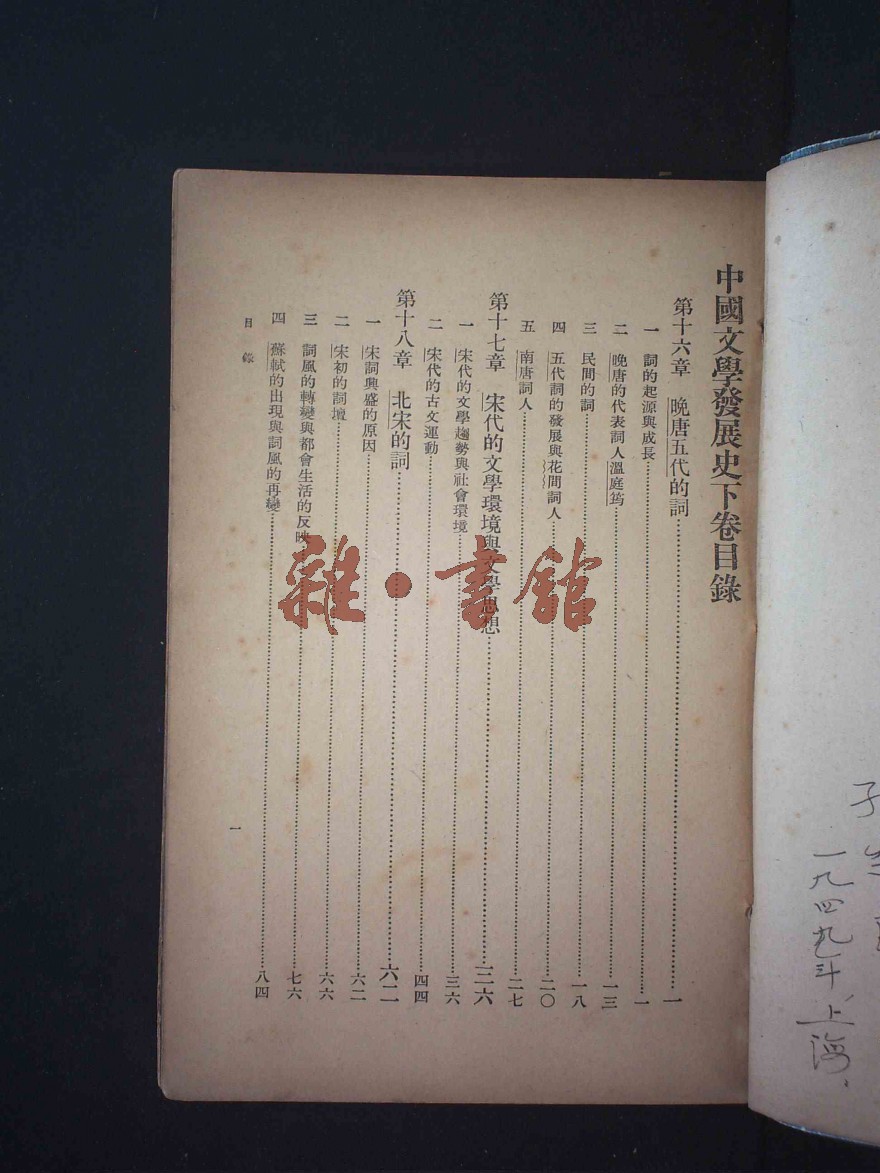 中國文學發展史下卷目錄
第十六章 晚唐五代的詞……一
一 詞的起源與成長……一
二 晚唐的代表詞人溫庭筠……一三
三 民間的詞……一八
四 五代詞的發展與花間詞人……二〇
五 南唐詞人……二七
第十七章 宋代的文學環境與文學思想……三六
一 宋代的文學趨勢與社會環境……三六
二 宋代的古文運動……四四
第十八章 北宋的詞……六二
一 宋詞興盛的原因……六二
二 宋初的詞壇……六六
三 詞風的轉變與都會生活的反映……七六
四 蘇軾的出現與詞風的再變……八四
目錄
一
雜·書館
一九四九年、上海、